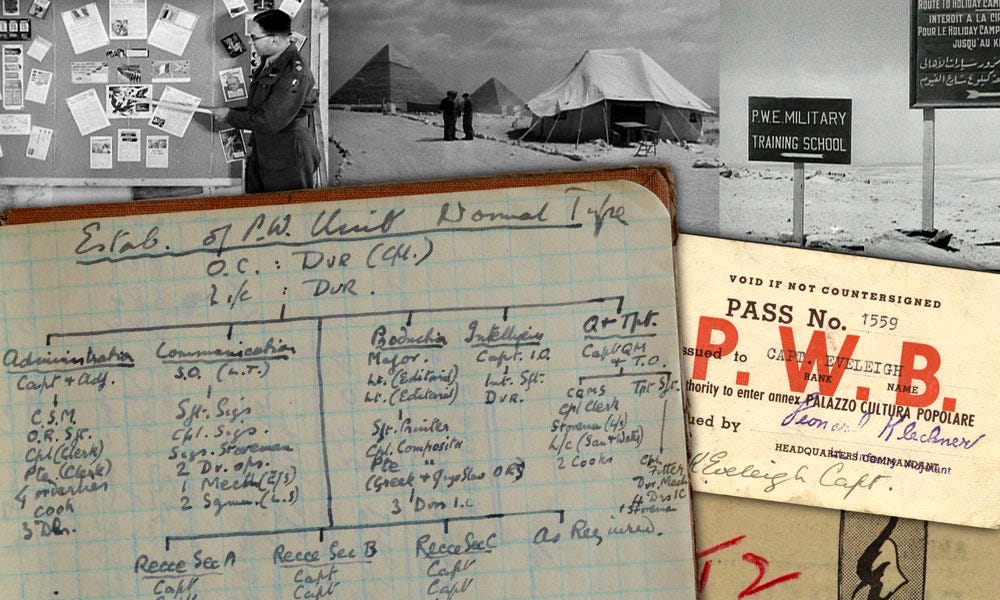 P.W.E. MILITARY
TRAINING SCHOOL
ROUTE TO HOLIDAY CAM
INTERDIT A LA CIR
POUR LE HOLIDAY CAMP
JUSQU'AU K
Estab. of P.W. Unit Normal Type
O.C. : DvR (Col.)
2 i/c : DvR.
Administration
Capt & Adj.
C.S.M.
O.R. Sgt.
Cpl (Clerk)
Pte. (Clerk)
4 orderlies
cook
3 Drs.
Communication
S.O. (L.T.)
Sgt. Sigs
Cpl. Sigs.
Sigs. Storeman
2 Dr. ops.
1 Mech (E/S)
2 Sgmn. (L.S)
Production
Major.
Lt. (Editorial)
Lt. (Editorial)
Sgt. Printer
Cpl. Compositor
Pte "
(Greek & Jugoslav ORs)
3 Dvrs I.C
Intelligence
Capt. I.O.
Int. Sgt.
DvR.
Q & Tpt.
Capt QM
& T.O.
CQMS
Cpl Clerk
Storeman
L/c (San & Water)
2 Cooks
Tpt Sgt.
Cpl
Fitter
Dvr. Mech
4 Drs IC
1 Storeman
Recce Sec A
Capt
Capt
Recce Sec B
Capt
Capt
Recce Sec C
Capt
Capt
As Required.
VOID IF NOT COUNTERSIGNED
PASS No. 1559
P.W.B.
ssued to CAPT. EVELEIGH
RANK NAME
thority to enter annex PALAZZO CULTURA POPOLARE
ued by Leonard
HEADQUARTERS COMMANDANT
Eveleigh Capt.
T2